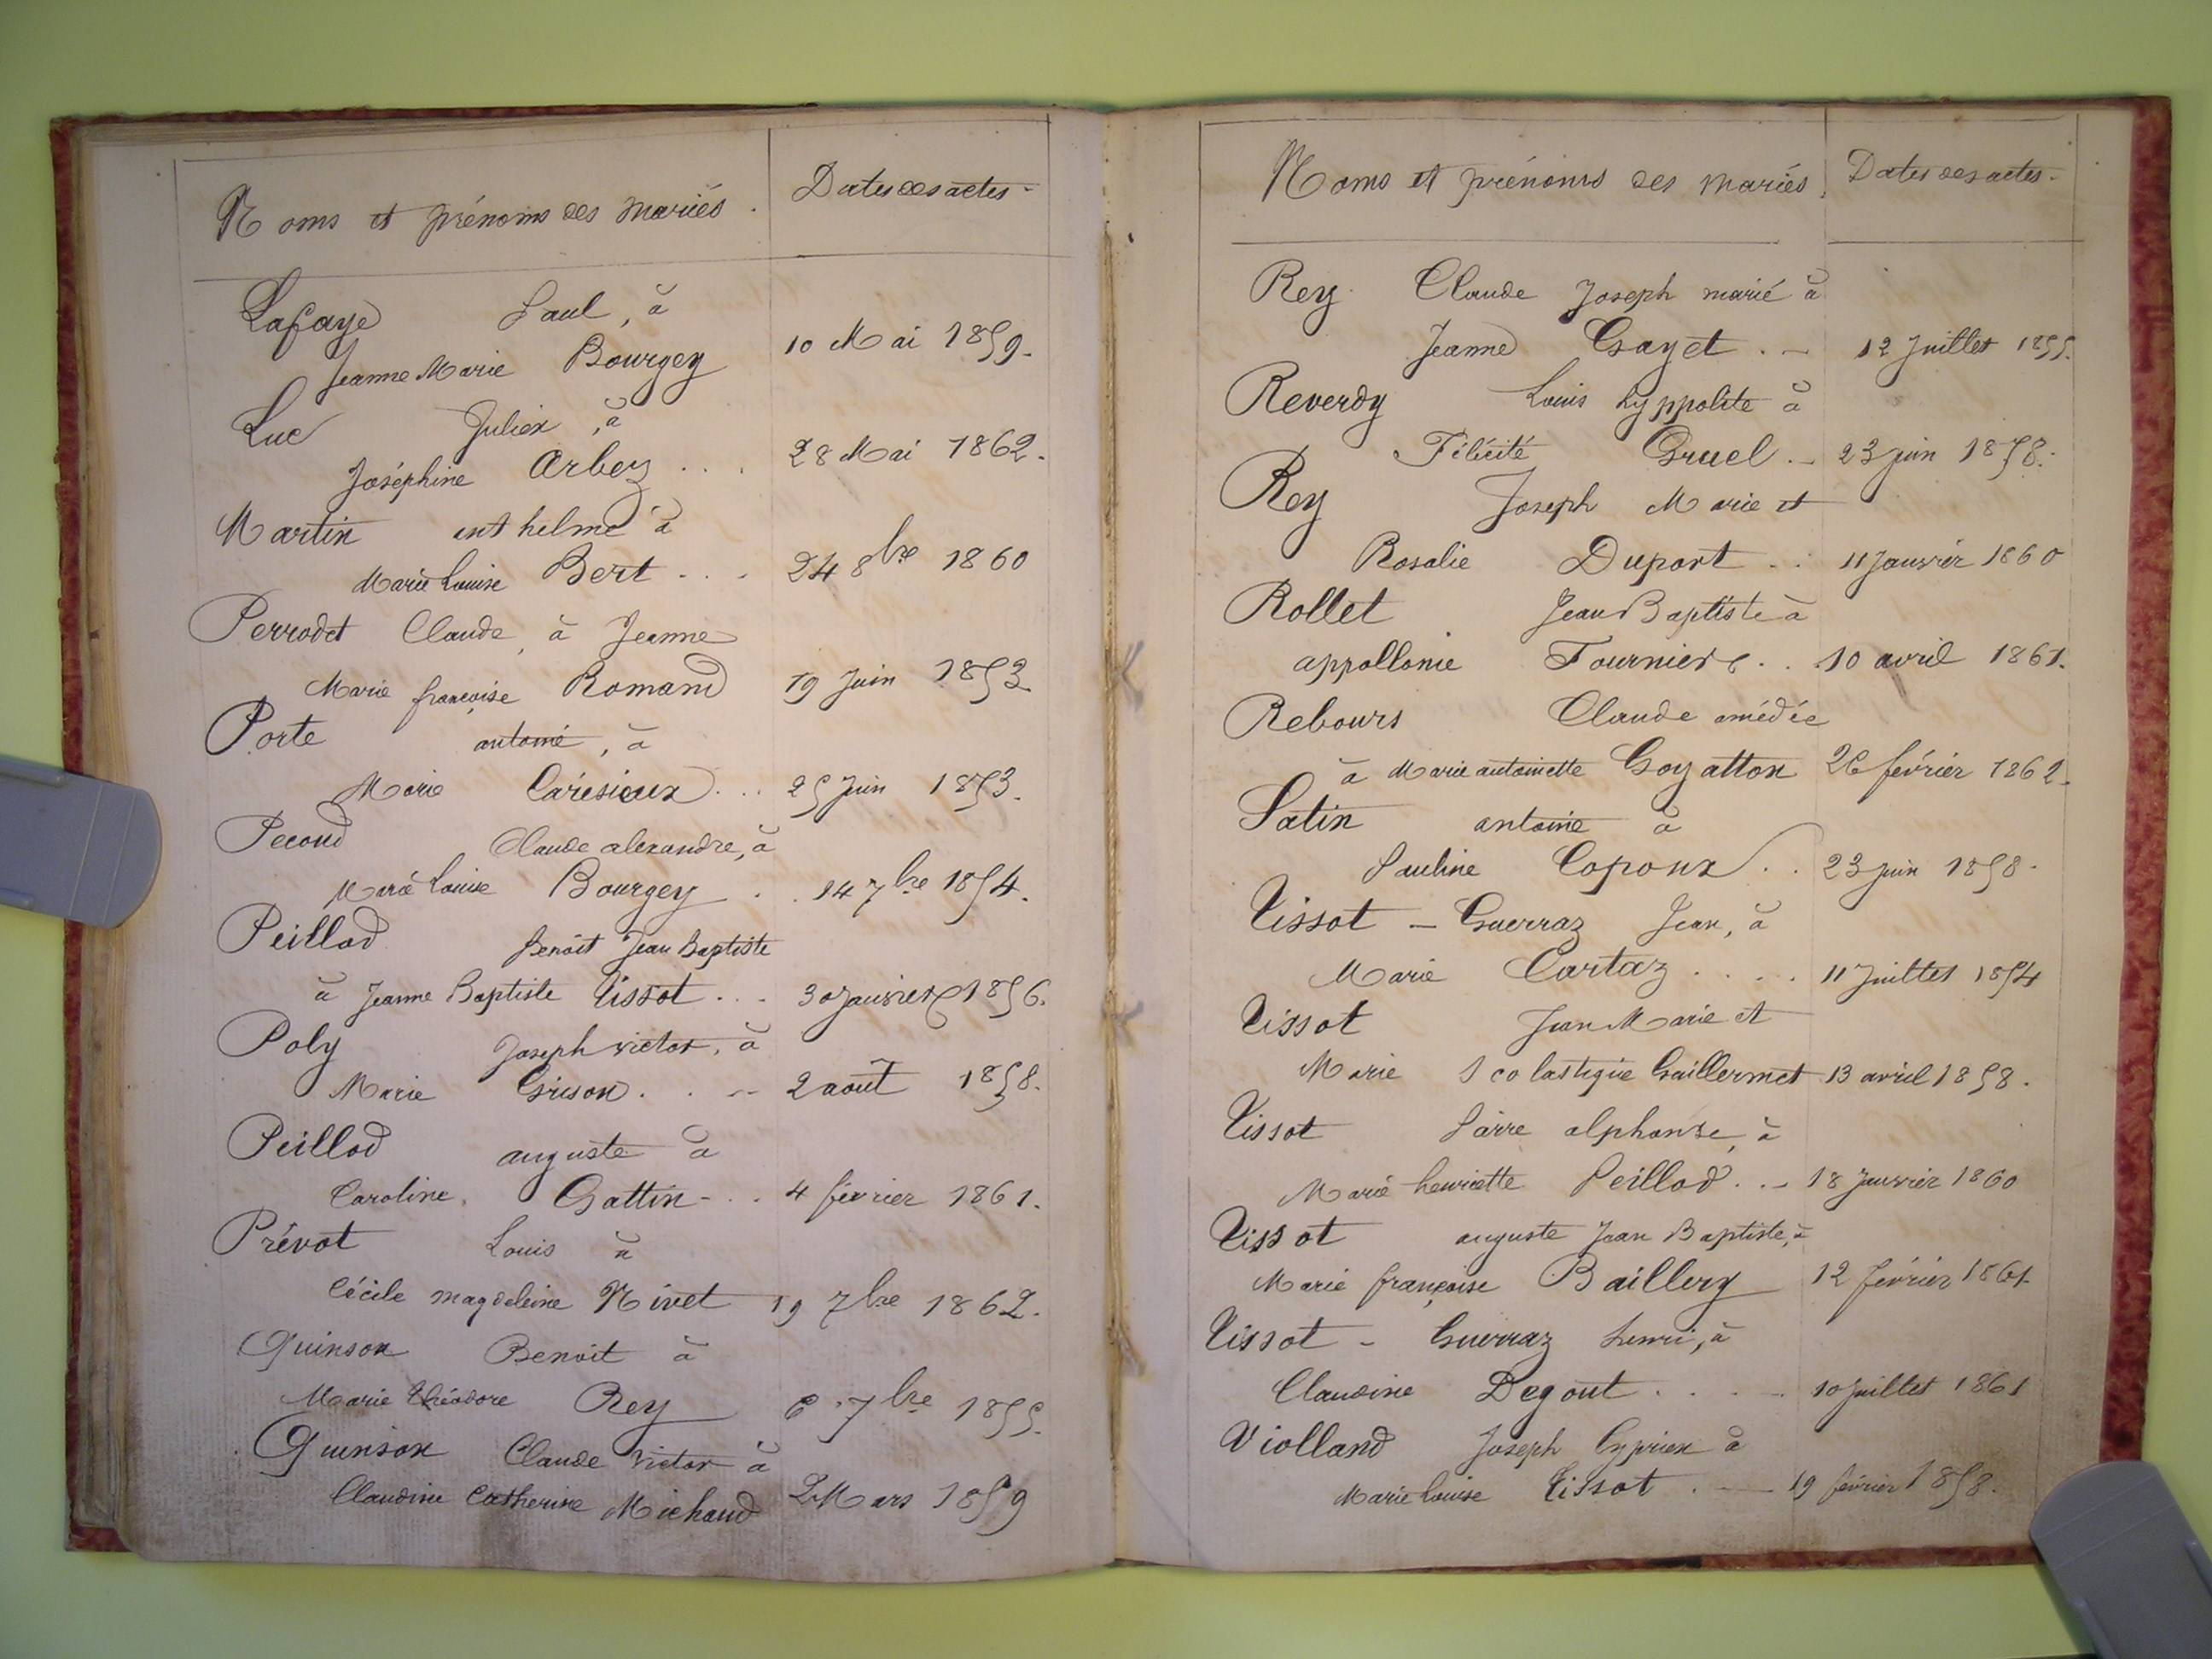 Noms et prénoms des mariés. Dates des actes.
Lafaye Paul, à
Jeanne Marie Bourgey 10 Mai 1859.
Luc Julien, à
Joséphine Arbez . . . 28 Mai 1862.
Martin anthelme à
Marie Louise Bert . . . 24 8bre 1860
Perrodet Claude, à Jeanne
Marie françoise Romand 19 Juin 1853
Porte antoine, à
Marie Carésieux . . . 25 Juin 1853.
Pecoud Claude alexandre, à
Marie Louise Bourgey . . 14 7bre 1854.
Peillod Benoît Jean Baptiste
à Jeanne Baptiste Tissot . . . 30 Janvier 1856.
Poly Joseph victor, à
Marie Grison . . -- 2 août 1858.
Peillod auguste à
Caroline Gattin - . . 4 février 1861.
Prévot Louis à
Cécile magdeleine Nivet 19 7bre 1862.
Quinson Benoit à
Marie théodore Rey 6 7bre 1855.
Quinson Claude victor à
Claudine Catherine Michaud 2 Mars 1859
Noms et prénoms des mariés. Dates des actes.
Rey Claude Joseph marié à
Jeanne Gayet . - 12 Juillet 1855.
Reverdy Louis hyppolite à
Félicité Gruel . - 23 juin 1858.
Rey Joseph Marie et
Rosalie Duport . . 11 Janvier 1860
Rollet Jean Baptiste à
appollonie Fournier . . 10 avril 1861.
Rebours Claude amédée
à Marie antoinette Goyatton 26 février 1862.
Satin antoine à
Pauline Coponx . . 23 juin 1858.
Tissot - Guerraz Jean, à
Marie Cartaz . . . . 11 Juillet 1854
Tissot Jean Marie et
Marie Scolastique Guillermet 13 avril 1858.
Tissot Pierre alphonse, à
Marie henriette Peillod . . - 18 Janvier 1860
Tissot auguste Jean Baptiste, à
Marie françoise Baillery 12 février 1861
Tissot - Guerraz henri, à
Claudine Degout . . . . 10 Juillet 1861
Violland Joseph Cyprien à
Marie Louise Tissot . - 19 février 1858.